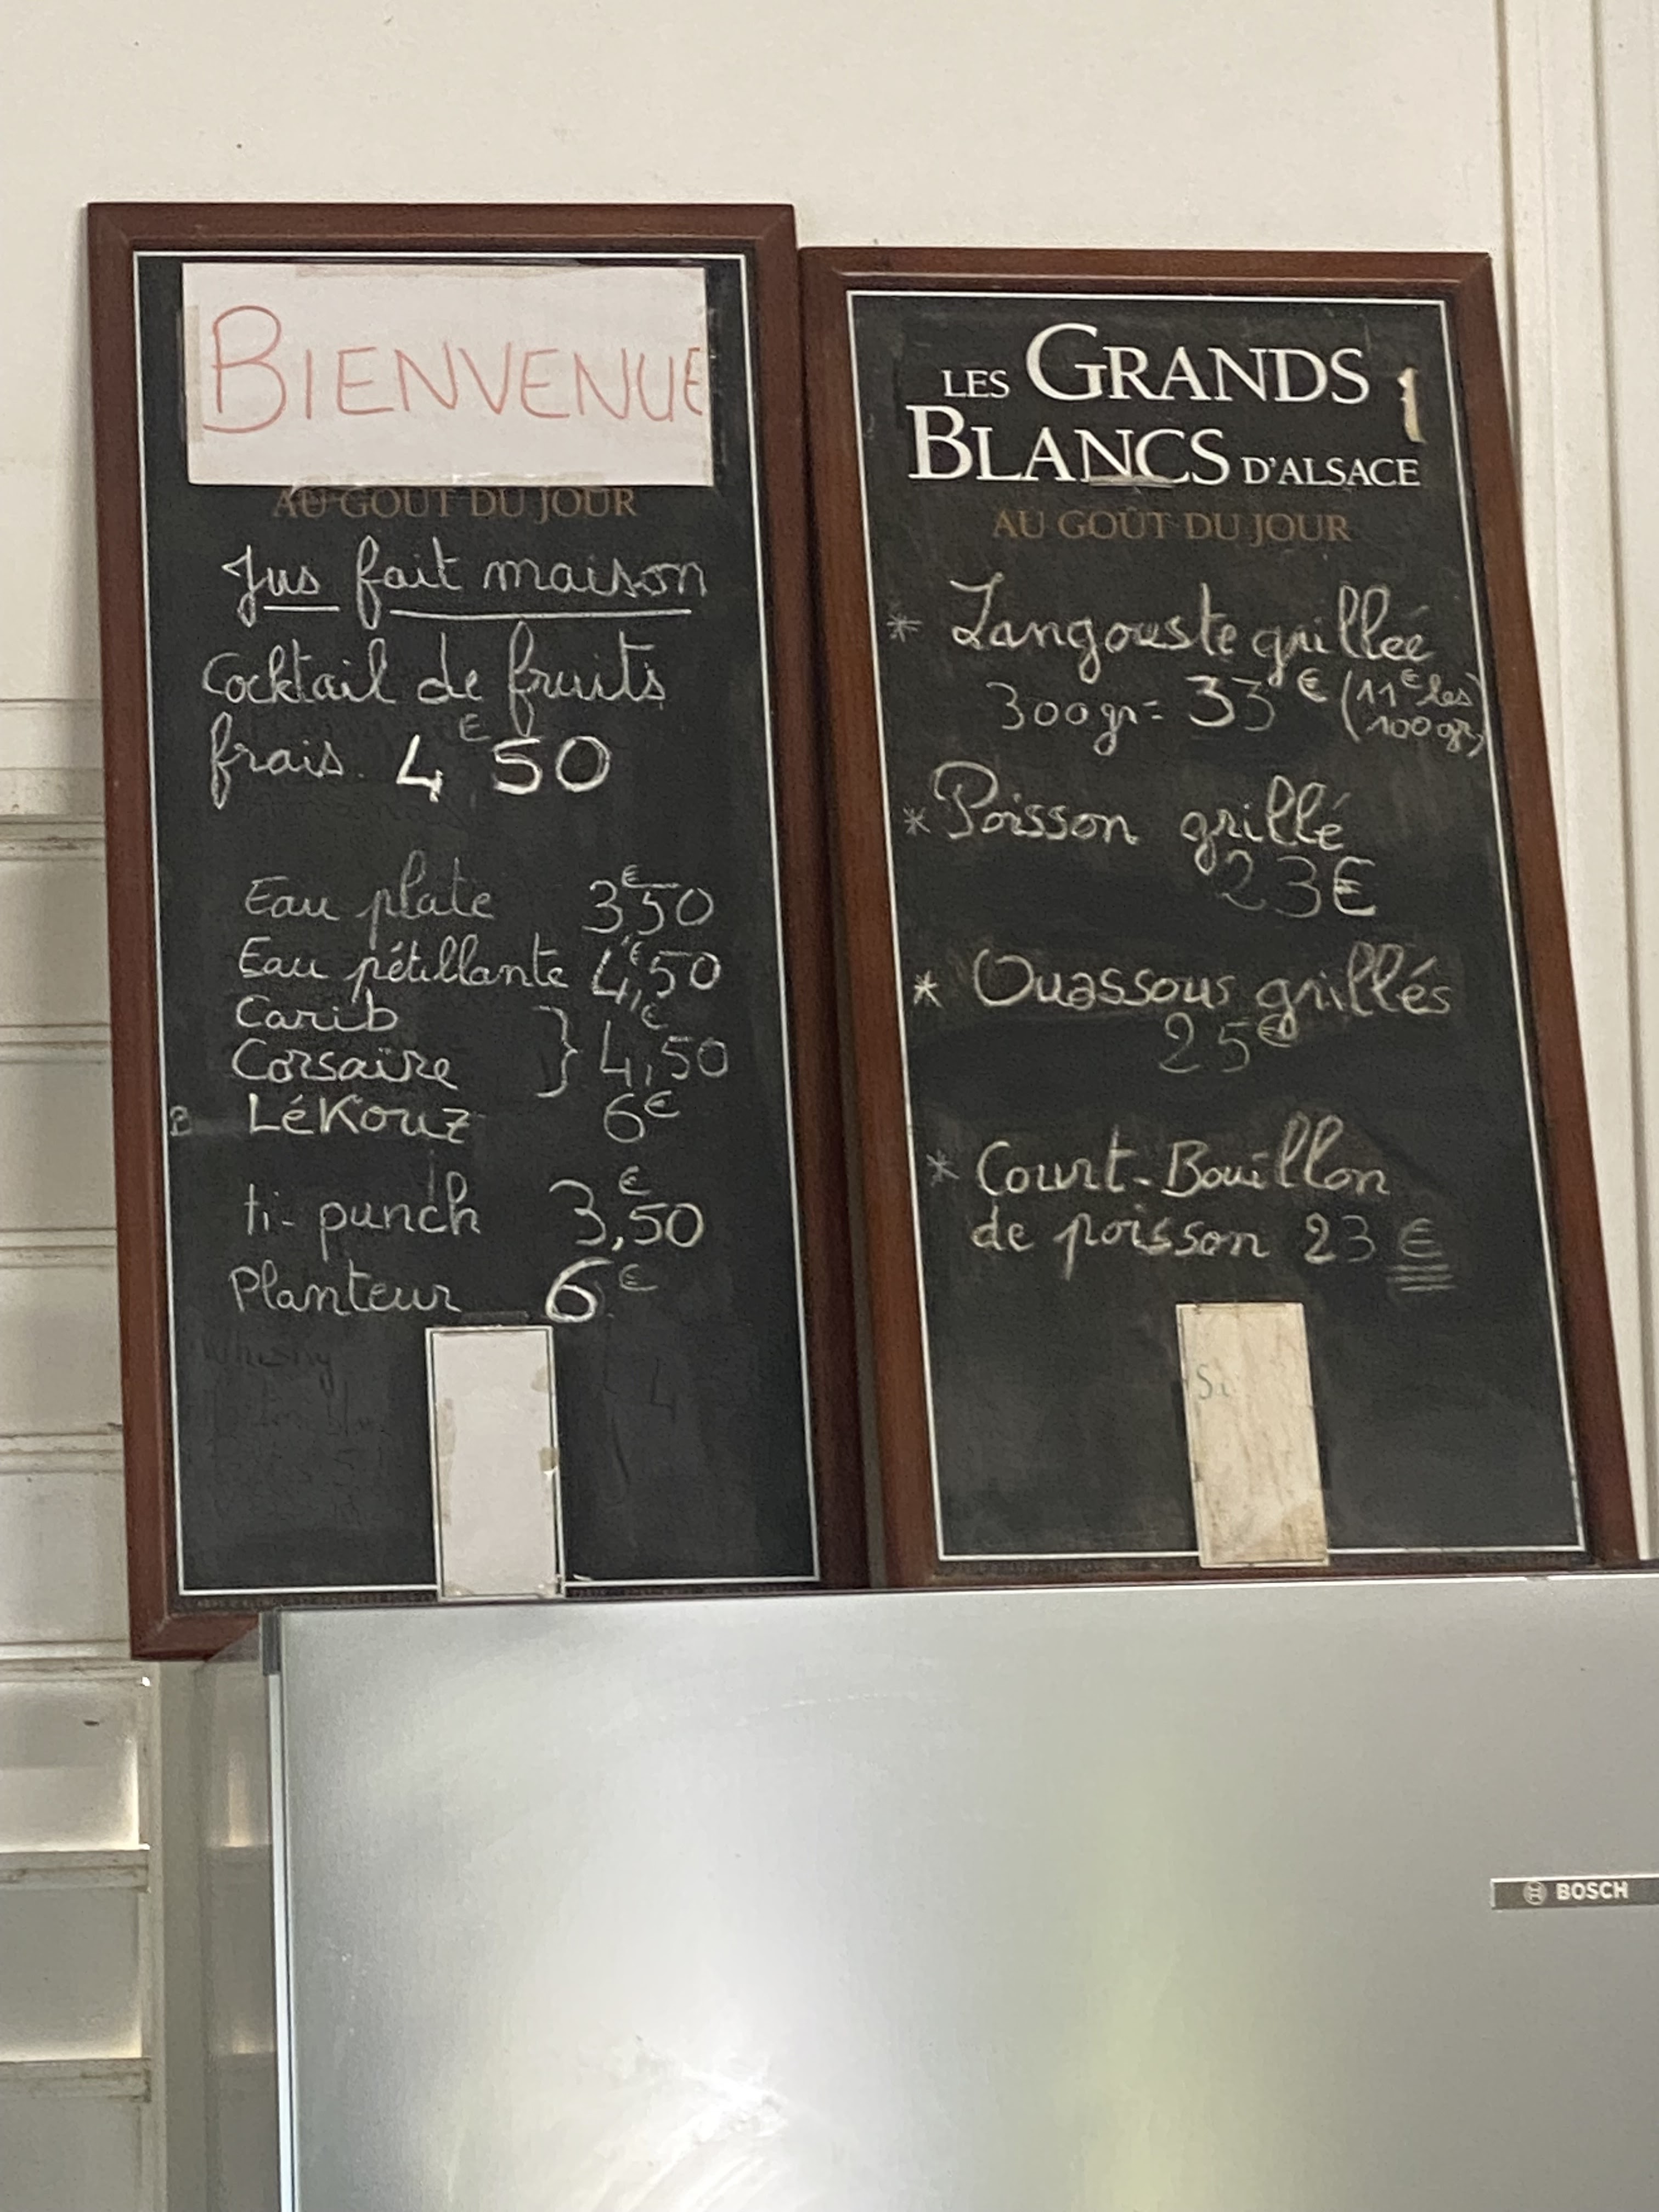 BIENVENUE
AU GOÛT DU JOUR
Jus fait maison
Cocktail de fruits
frais. 4€50
Eau plate 3€50
Eau pétillante 4,€50
Carib
Corsaire } 4,€50
LéKouz 6€
ti-punch 3,€50
Planteur 6€
LES GRANDS
BLANCS D'ALSACE
AU GOÛT DU JOUR
* Langouste grillée
300gr = 33€ (11€ les
100gr)
* Poisson grillé
23€
* Ouassous grillés
25€
* Court-Bouillon
de poisson 23€
BOSCH